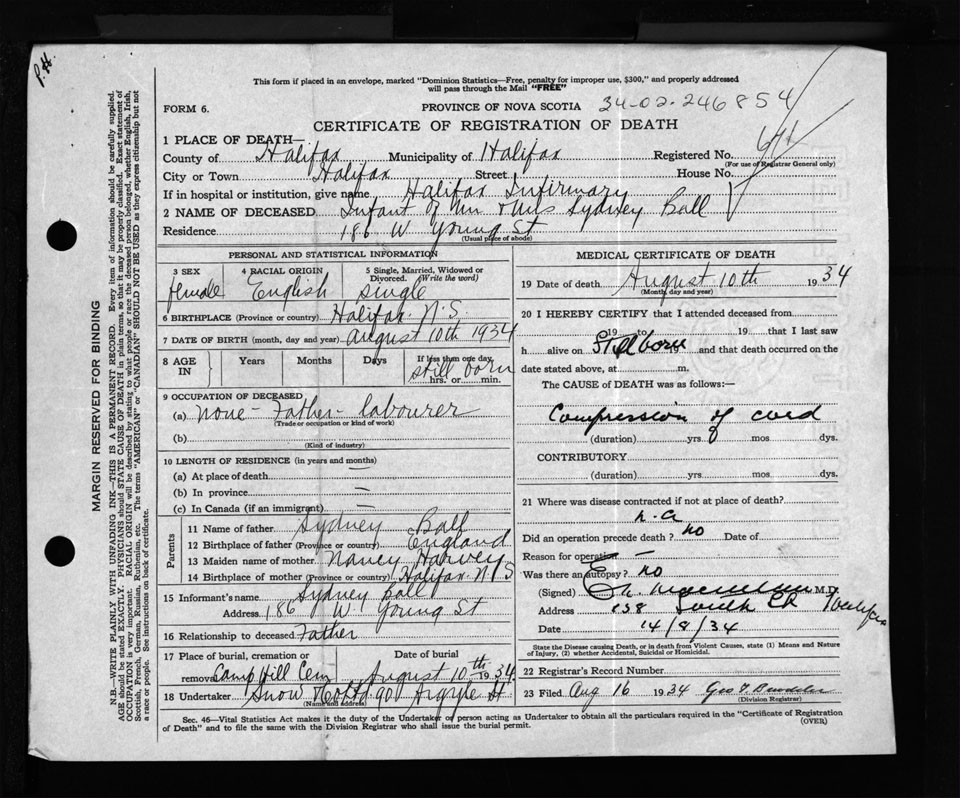 P.H.
This form if placed in an envelope, marked "Dominion Statistics—Free, penalty for improper use, $300," and properly addressed
will pass through the Mail "FREE"
FORM 6.
PROVINCE OF NOVA SCOTIA 34-02-246854
CERTIFICATE OF REGISTRATION OF DEATH
1 PLACE OF DEATH—
County of Halifax Municipality of Halifax Registered No.
(For use of Registrar General only)
City or Town Halifax Street House No.
If in hospital or institution, give name Halifax Infirmary
2 NAME OF DECEASED Infant of Mr & Mrs Sydney Ball
Residence 186 W Young St
(Usual place of abode)
PERSONAL AND STATISTICAL INFORMATION
3 SEX 4 RACIAL ORIGIN 5 Single, Married, Widowed or Divorced. (Write the word)
female English single
6 BIRTHPLACE (Province or country) Halifax N.S.
7 DATE OF BIRTH (month, day and year) August 10th 1934
8 AGE IN Years Months Days If less than one day
still born
hrs. or min.
9 OCCUPATION OF DECEASED
(a) none - Father - labourer
(Trade or occupation or kind of work)
(b)
(Kind of industry)
10 LENGTH OF RESIDENCE (in years and months)
(a) At place of death —
(b) In province —
(c) In Canada (if an immigrant) —
Parents
11 Name of father Sydney Ball
12 Birthplace of father (Province or country) England
13 Maiden name of mother Nancy Harvey
14 Birthplace of mother (Province or country) Halifax N S
15 Informant's name Sydney Ball
Address 186 W Young St
16 Relationship to deceased Father
17 Place of burial, cremation or removal Date of burial
Camp Hill Cem August 10th 1934
18 Undertaker Snow & Co Ltd 90 Argyle St
(Name and address)
MEDICAL CERTIFICATE OF DEATH
19 Date of death August 10th 1934
(Month, day and year)
20 I HEREBY CERTIFY that I attended deceased from
19 to 19 that I last saw
h alive on Stillborn 19 and that death occurred on the
date stated above, at m.
The CAUSE of DEATH was as follows:—
Compression of cord
(duration) yrs mos dys.
CONTRIBUTORY
(duration) yrs mos dys.
21 Where was disease contracted if not at place of death?
n.a
Did an operation precede death? no Date of
Reason for operation —
Was there an autopsy? no
(Signed) M.D.
Address South Halifax
Date 14/8/34
State the Disease causing Death, or in death from Violent Causes, state (1) Means and Nature
of Injury, (2) whether Accidental, Suicidal or Homicidal.
22 Registrar's Record Number
23 Filed Aug 16 1934 Geo
(Division Registrar)
Sec. 46—Vital Statistics Act makes it the duty of the Undertaker or person acting as Undertaker to obtain all the particulars required in the "Certificate of Registration
of Death" and to file the same with the Division Registrar who shall issue the burial permit.
(OVER)
MARGIN RESERVED FOR BINDING
N.B.—WRITE PLAINLY WITH UNFADING INK—THIS IS A PERMANENT RECORD. Every item of information should be carefully supplied.
AGE should be stated EXACTLY. PHYSICIANS should STATE CAUSE OF DEATH in plain terms, so that it may be properly classified. Exact statement of
OCCUPATION is very important. RACIAL ORIGIN will be described by stating to what people or race the deceased person belonged, whether English, Irish,
Scottish, French, German, Russian, Ruthenian, etc. The terms "AMERICAN" or "CANADIAN" SHOULD NOT BE USED as they express citizenship but not
a race or people. See instructions on back of certificate.